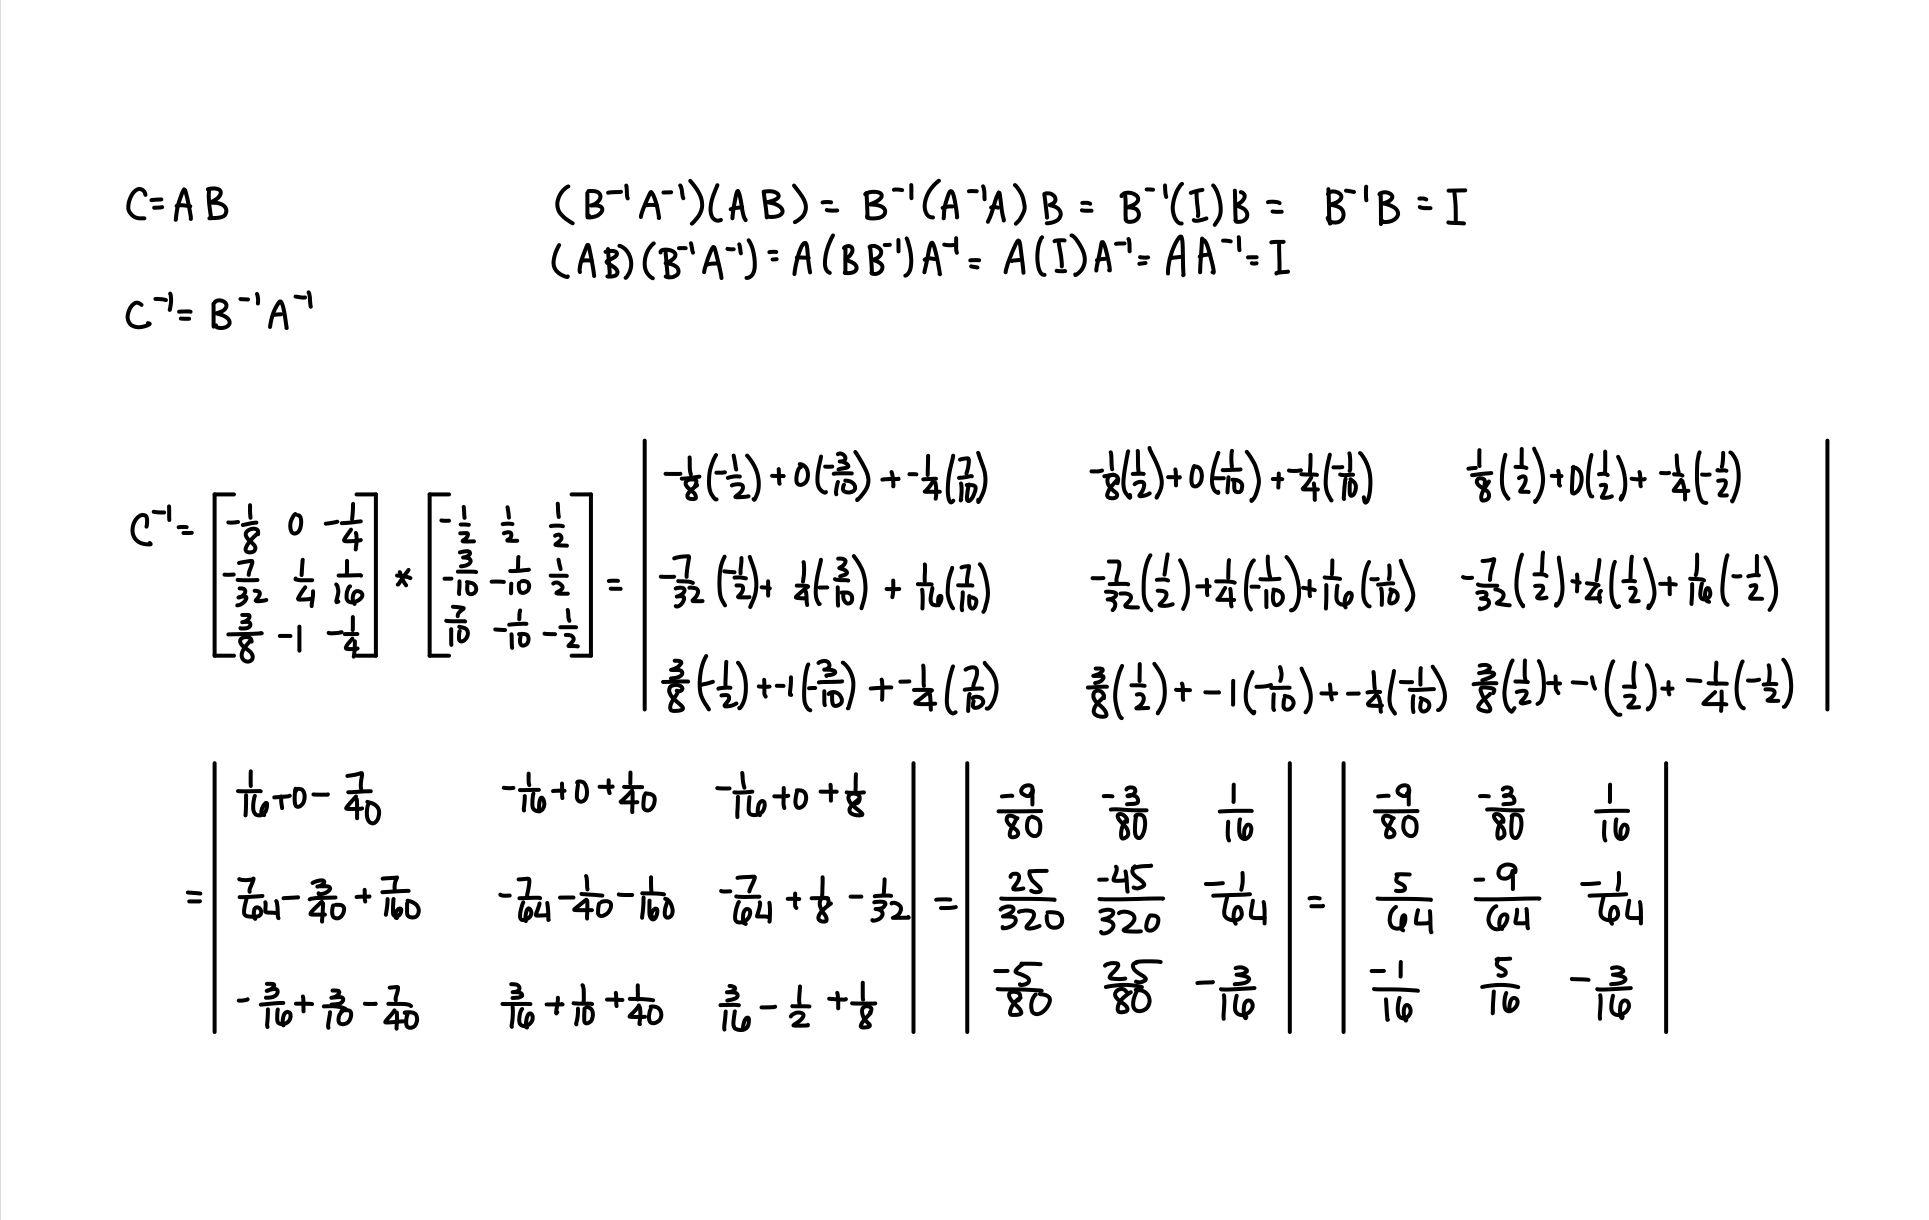 C = AB
(B⁻¹A⁻¹)(AB) = B⁻¹(A⁻¹A)B = B⁻¹(I)B = B⁻¹B = I
(AB)(B⁻¹A⁻¹) = A(BB⁻¹)A⁻¹ = A(I)A⁻¹ = AA⁻¹ = I
C⁻¹ = B⁻¹A⁻¹
C⁻¹ = [-1/8 0 -1/4; -7/32 1/4 1/16; 3/8 -1 -1/4] * [-1/2 1/2 1/2; -3/10 -1/10 1/2; 7/10 -1/10 -1/2] =
| -1/8(-1/2) + 0(-3/10) + -1/4(7/10) -1/8(1/2) + 0(-1/10) + -1/4(-1/10) -1/8(1/2) + 0(1/2) + -1/4(-1/2) |
| -7/32(-1/2) + 1/4(-3/10) + 1/16(7/10) -7/32(1/2) + 1/4(-1/10) + 1/16(-1/10) -7/32(1/2) + 1/4(1/2) + 1/16(-1/2) |
| 3/8(-1/2) + -1(-3/10) + -1/4(7/10) 3/8(1/2) + -1(-1/10) + -1/4(-1/10) 3/8(1/2) + -1(1/2) + -1/4(-1/2) |
= | 1/16 + 0 - 7/40 -1/16 + 0 + 1/40 -1/16 + 0 + 1/8 |
| 7/64 - 3/40 + 7/160 -7/64 - 1/40 - 1/160 -7/64 + 1/8 - 1/32 |
| -3/16 + 3/10 - 7/40 3/16 + 1/10 + 1/40 3/16 - 1/2 + 1/8 |
= | -9/80 -3/80 1/16 |
| 25/320 -45/320 -1/64 |
| -5/80 25/80 -3/16 |
= | -9/80 -3/80 1/16 |
| 5/64 -9/64 -1/64 |
| -1/16 5/16 -3/16 |